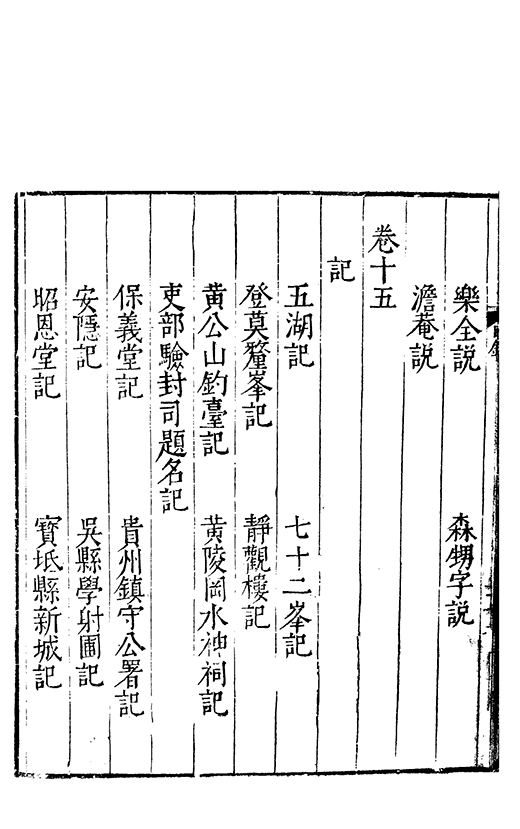 樂全説　森甥字説
澹菴説
卷十五
記
五湖記　七十二峯記
登莫釐峯記　靜觀樓記
黄公山釣臺記　黄陵岡水神祠記
吏部驗封司題名記
保義堂記　貴州鎮守公署記
安隱記　吳縣學射圃記
昭恩堂記　寳坻縣新城記